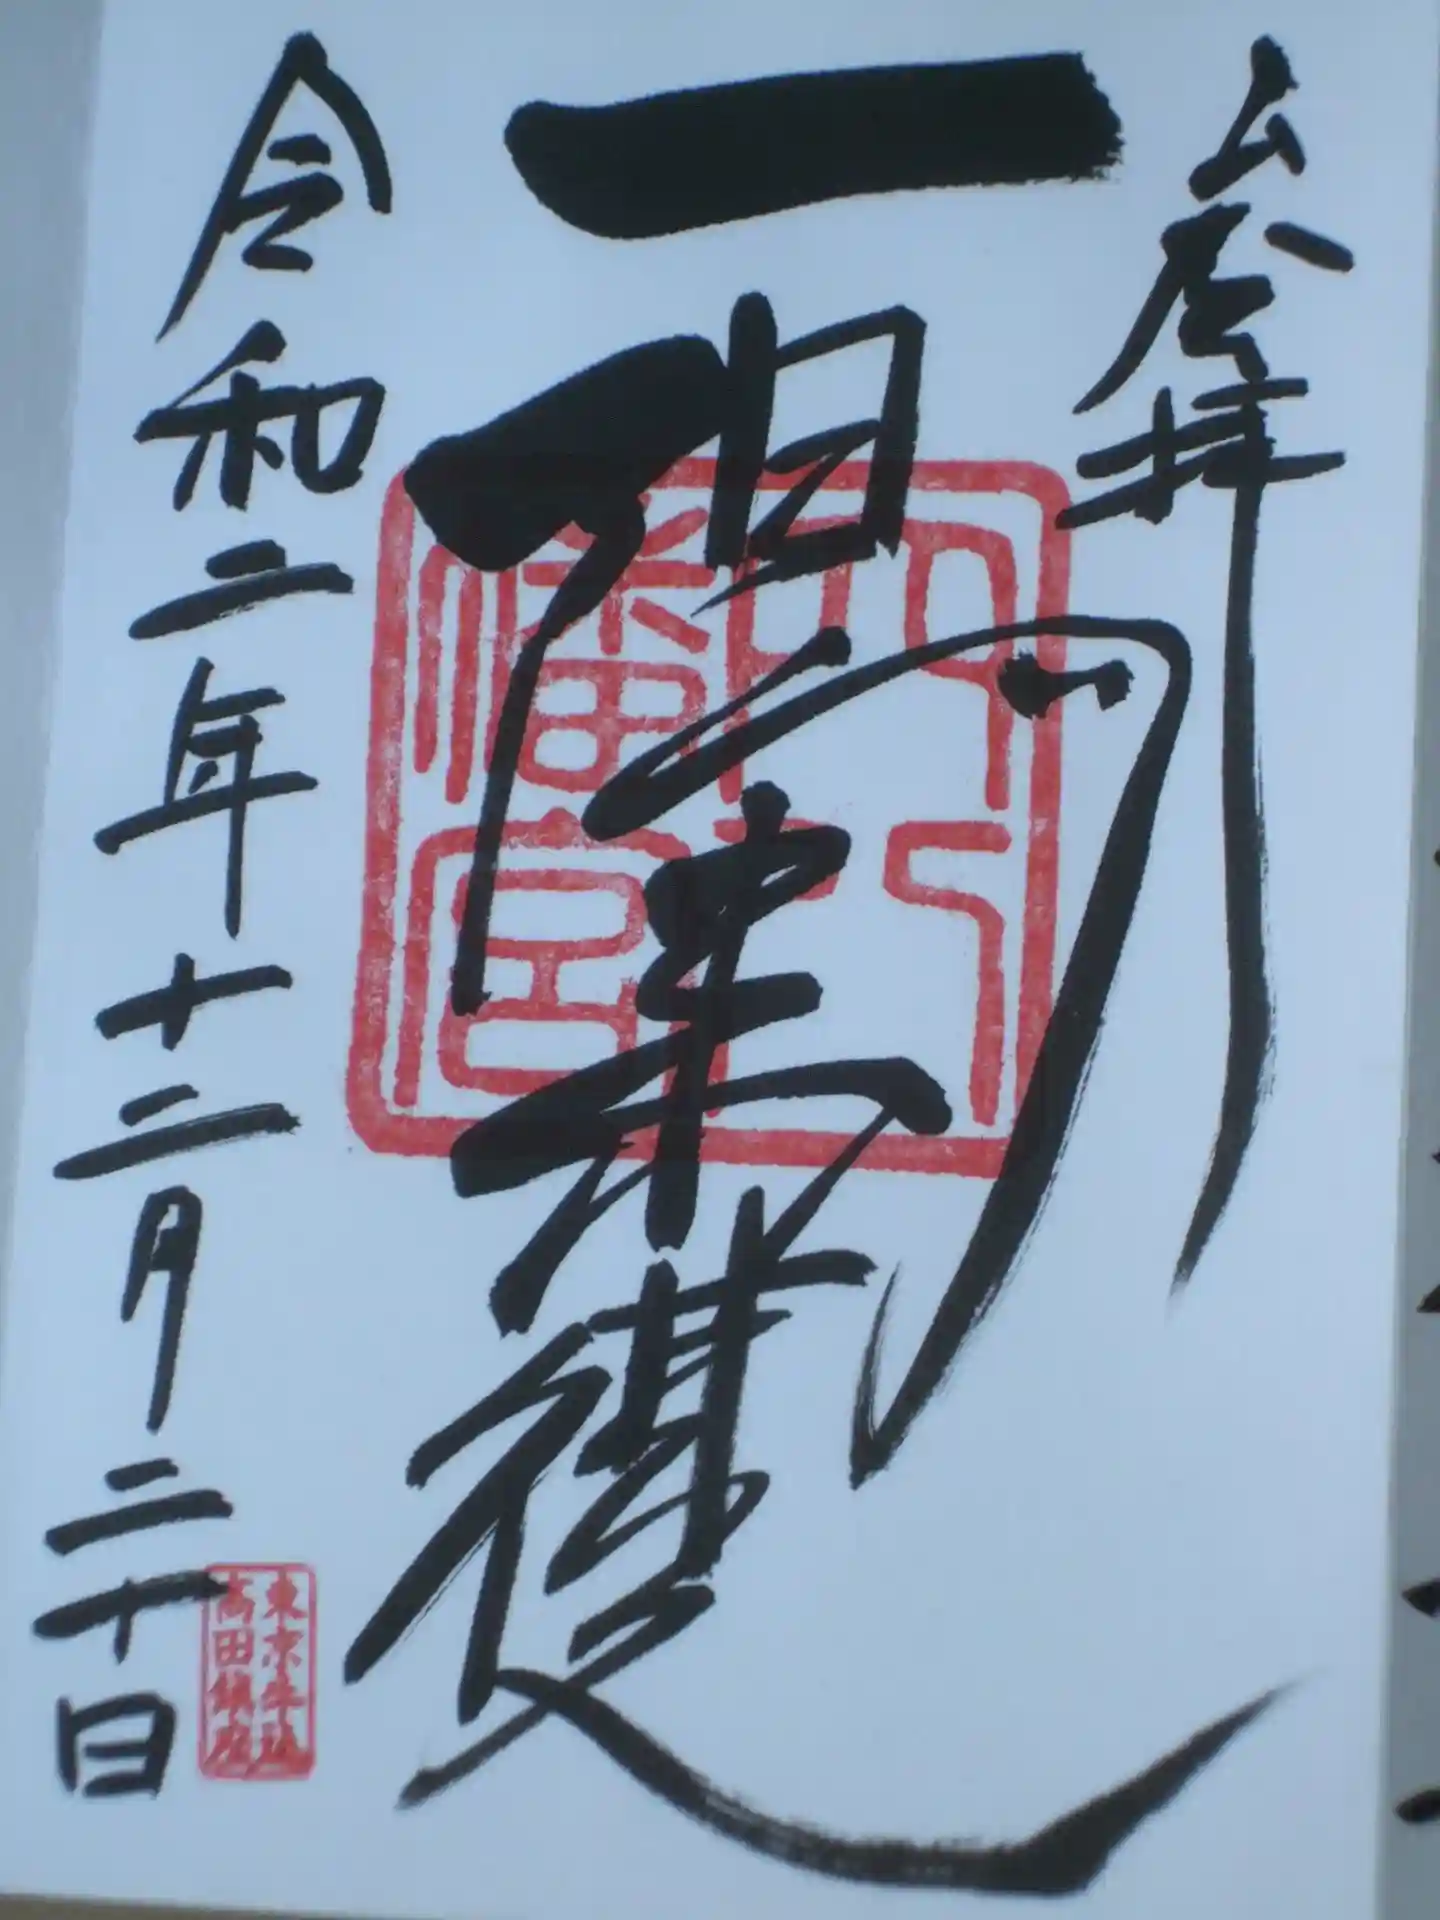 参拝
一陽来復
穴八幡宮
令和二年十二月二十日
東京牛込
高田鎮座